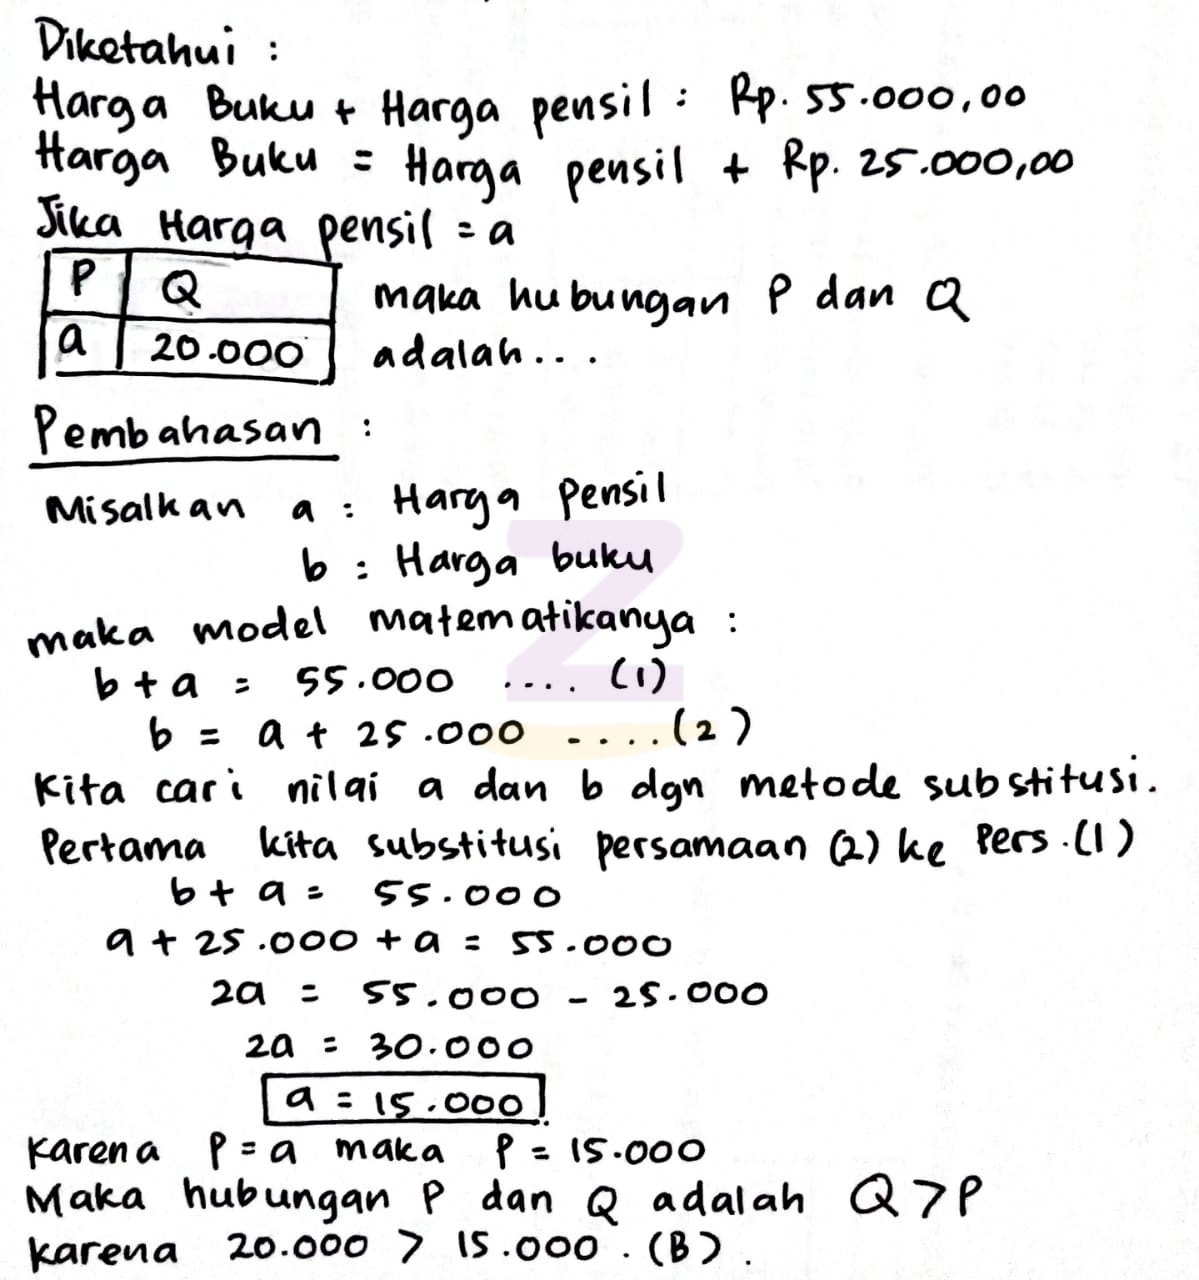 Diketahui :
Harga Buku + Harga pensil : Rp. 55.000,00
Harga Buku = Harga pensil + Rp. 25.000,00
Jika Harga pensil = a
P Q
a 20.000
maka hubungan P dan Q
adalah...
Pembahasan :
Misalkan a : Harga Pensil
b : Harga buku
maka model matematikanya :
b + a = 55.000 .... (1)
b = a + 25.000 ..... (2)
Kita cari nilai a dan b dgn metode substitusi.
Pertama kita substitusi persamaan (2) ke Pers.(1)
b + a = 55.000
a + 25.000 + a = 55.000
2a = 55.000 - 25.000
2a = 30.000
a = 15.000
Karena P = a maka P = 15.000
Maka hubungan P dan Q adalah Q > P
karena 20.000 > 15.000 . (B).
Z